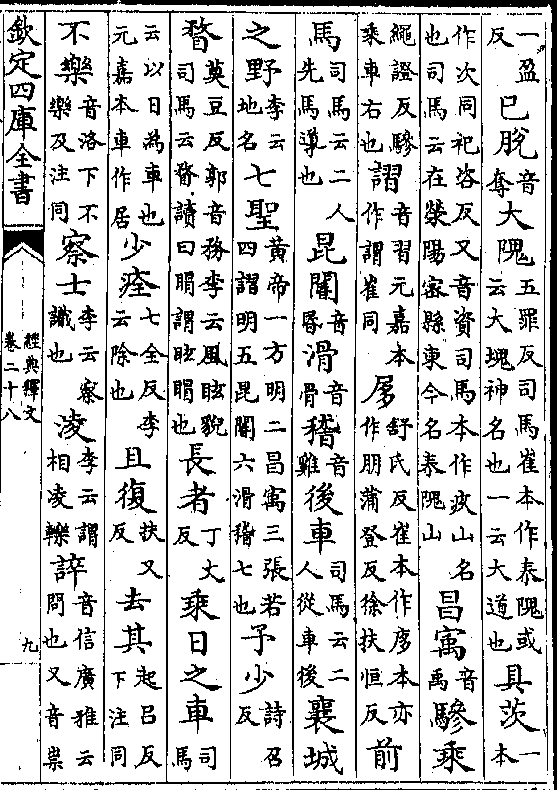 一盈反 已脱音奪 大隗五罪反司馬崔本作泰隗或云大塊神名也一云大道也 具茨一本
作次同祀咨反又音資司馬本作疚山名也司馬云在滎陽密縣東今名泰隗山 昌㝢音禹 驂乘
繩證反驂乘車右也 謵音習元嘉本作謂崔同 朋舒氏反崔本作廖本亦作朋蒲登反徐扶恒反 前
馬司馬云二人先馬導也 昆閽音昏 滑音骨 稽音雞 後車司馬云二人從車後 襄城
之野李云地名 七聖黄帝一方明二昌㝢三張若四謵明五昆閽六滑稽七也 予少詩召反
瞀莫豆反郭音務李云風眩貌司馬云瞀讀曰瞑謂眩瞑也 長者丁丈反 乘日之車司馬
云以日為車也元嘉本車作居 少痊七全反李云除也 且復扶又反 去其起吕反下注同
不樂音洛下不樂及注同 察士李云察識也 凌李云謂相凌轢 誶音信廣雅云問也又音崇
欽定四庫全書
經典釋文
卷二十八
九